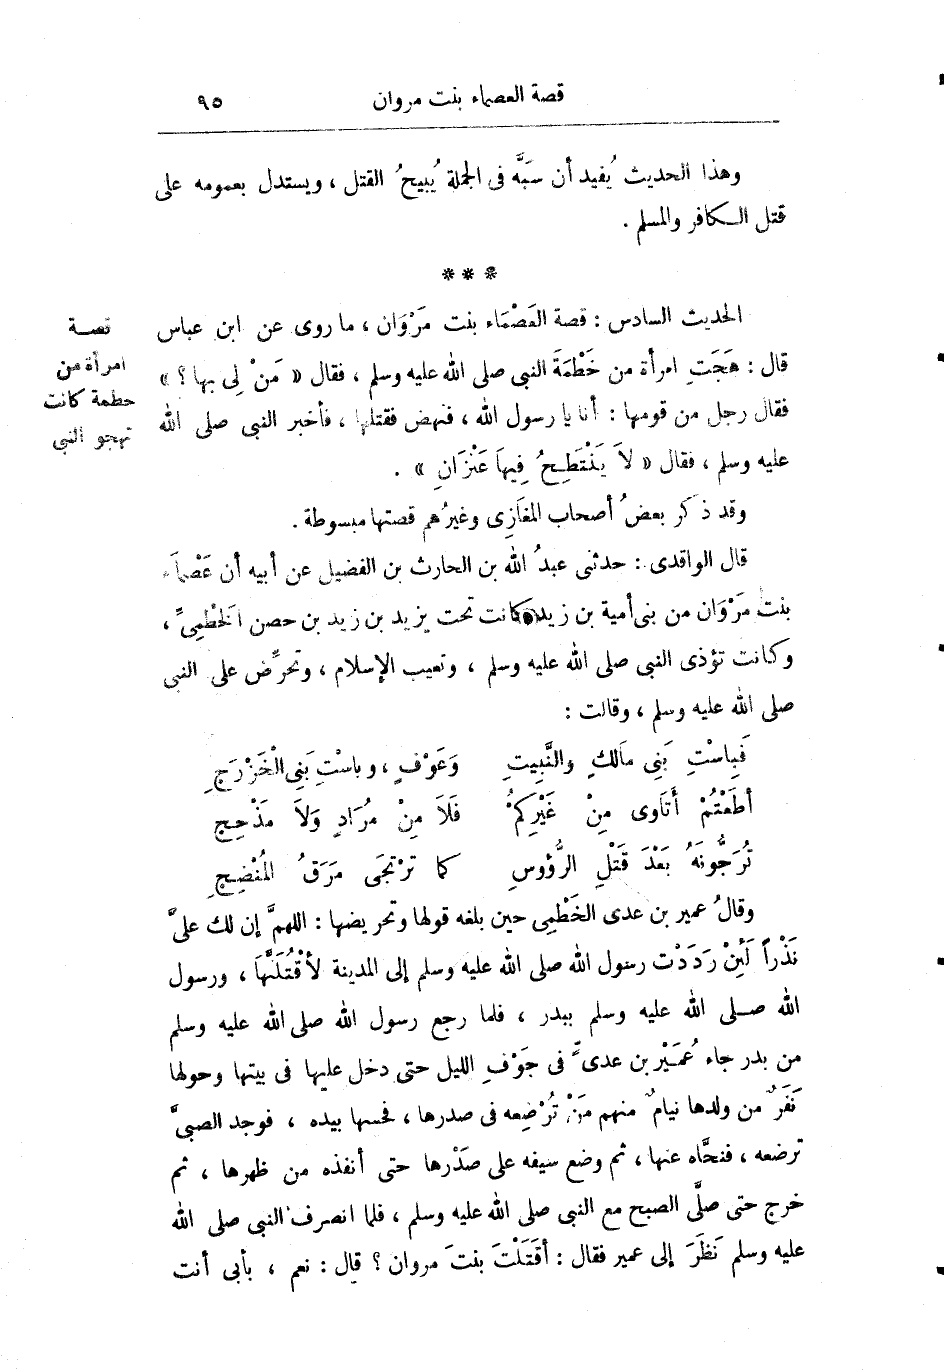 قصة العصماء بنت مروان ٩٥
وهذا الحديث يُفيد أن سَبَّه فى الجملة يُبيحُ القتل ، ويستدل بعمومه على
قتل الـكافر والمسلم .
* * *
الحديث السادس : قصة العَصْمَاء بنت مَرْوَان ، ما روى عن ابن عباس
قال : هَجَتِ امرأة من خَطْمَةَ النبى صلى الله عليه وسلم ، فقال « مَنْ لِى بها ؟ »
فقال رجل من قومها : أنا يا رسول الله ، فنهض فقتلها ، فأخبر النبى صلى الله
عليه وسلم ، فقال « لاَ يَنْتَطِـحُ فِيهَا عَنْزَانِ » .
قصـة
امرأة من
خطمة كانت
تهجو النبى
وقد ذكر بعضُ أصحاب المغازى وغيرُهم قصتها مبسوطة .
قال الواقدى : حدثنى عبدُ الله بن الحارث بن الفضيل عن أبيه أن عَصْمَاء
بنت مَرْوَان من بنى أمية بن زيد كانت تحت يزيد بن زيد بن حصن الخَطْمِىِّ ،
وكانت تؤذى النبى صلى الله عليه وسلم ، وتعيب الإسلام ، وتحرِّض على النبى
صلى الله عليه وسلم ، وقالت :
فَبِاسْتِ بَنِى مَالكٍ والنَّبِيتِ وَعَوْفٍ ، وباسْتِ بَنِى الْخَزْرَجِ
أطَعْتُمْ أتَاوى مِنْ غَيْرِكُمْ فَلاَ مِنْ مُرَادٍ وَلاَ مَذْحِجِ
تُرَجُّونَهُ بَعْدَ قَتْلِ الرُّؤوسِ كما تُرْتَجَى مَرَقُ المُنْضِجِ
وقالُ عمير بن عدى الخَطْمِى حين بلغه قولها وتحريضها : اللهمَّ إن لك علىَّ
نَذْراً لَئِنْ رَدَدْتَ رسول الله صلى الله عليه وسلم إلى المدينة لأقْتُلَنَّهَا ، ورسول
الله صـلى الله عليه وسلم ببدر ، فلما رجع رسول الله صلى الله عليه وسلم
من بدر جاء عُمَيْر بن عدىٍّ فى جَوْفِ الليل حتى دخل عليها فى بيتها وحولها
نَفَرٌ من ولدها نيامٌ منهم مَنْ تُرْضِعه فى صدرها ، فجسها بيده ، فوجد الصبىَّ
ترضعه ، فنحَّاه عنها ، ثم وضع سيفه على صَدْرها حتى أنفذه من ظهرها ، ثم
خرج حتى صلَّى الصبح مع النبى صلى الله عليه وسلم ، فلما انصرف النبى صلى الله
عليه وسلم نَظَرَ إلى عمير فقال : أقَتَلْتَ بنتَ مروان ؟ قال : نعم ، بأبى أنت